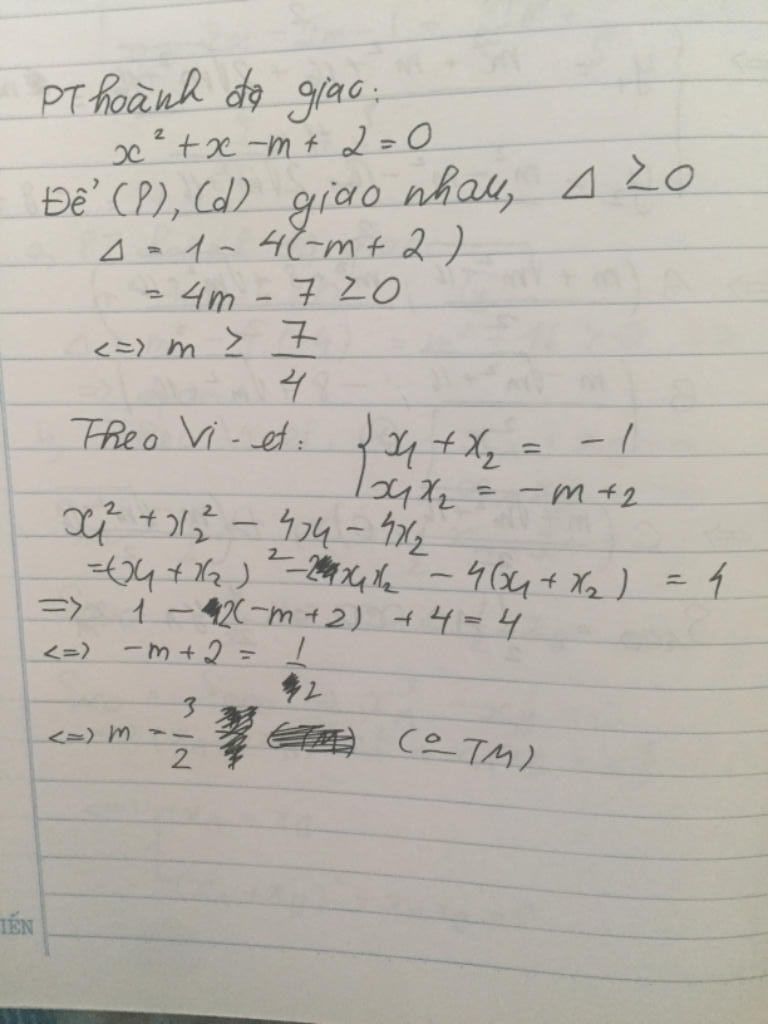 PT hoành độ giao:
x² + x - m + 2 = 0
Để (P), (d) giao nhau, Δ ≥ 0
Δ = 1 - 4(-m + 2)
= 4m - 7 ≥ 0
<=> m ≥ 7/4
Theo Vi-et: { x₁ + x₂ = -1
x₁x₂ = -m + 2
x₁² + x₂² - 4x₁ - 4x₂
= (x₁ + x₂)² - 2x₁x₂ - 4(x₁ + x₂) = 4
=> 1 - 2(-m + 2) + 4 = 4
<=> -m + 2 = 1/2
<=> m = 3/2 (o TM)
IẾN